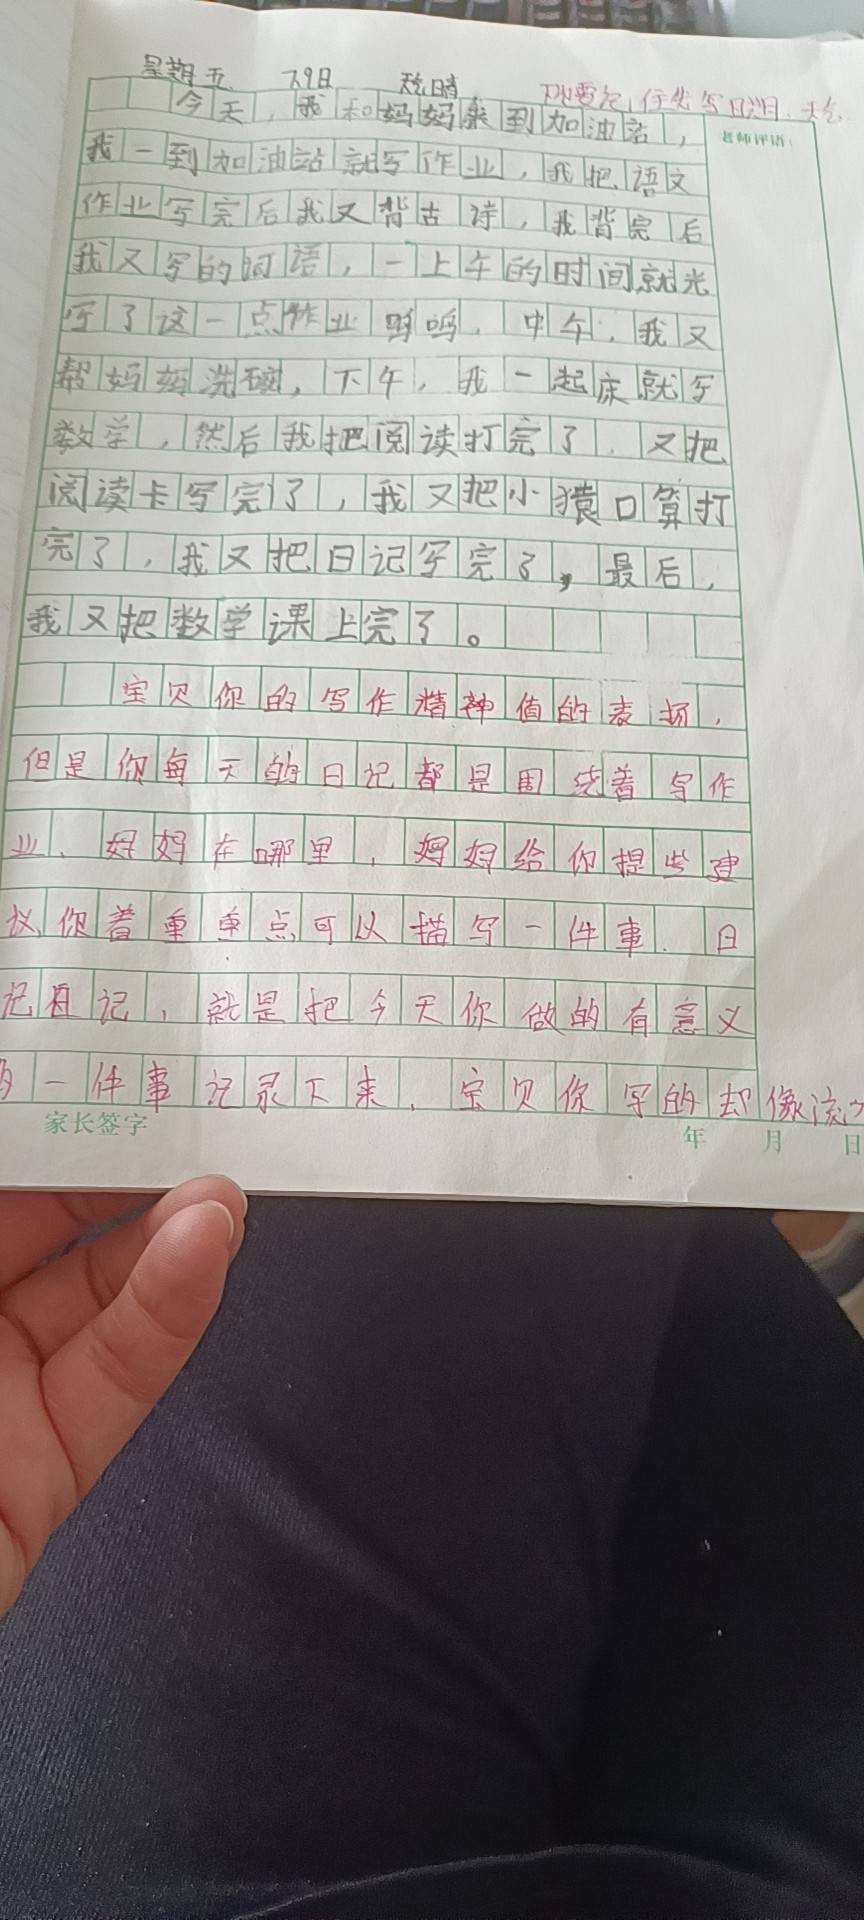 星期五 7.9日 天气晴 要记 先写日期、天气
今天，我和妈妈来到加油站，
老师评语：
我一到加油站就写作业，我把语文
作业写完后我又背古诗，我背完后
我又写的词语，一上午的时间就光
写了这一点作业呜呜，中午，我又
帮妈妈洗碗，下午，我一起床就写
数学，然后我把阅读打完了，又把
阅读卡写完了，我又把小猿口算打
完了，我又把日记写完了，最后，
我又把数学课上完了。
宝贝你的写作精神值的表扬，
但是你每天的日记都是围绕着写作
业、妈妈在哪里，妈妈给你提些建
议你着重重点可以描写一件事、日
记日记，就是把今天你做的有意义
的一件事记录下来，宝贝你写的却像流
家长签字 年 月 日